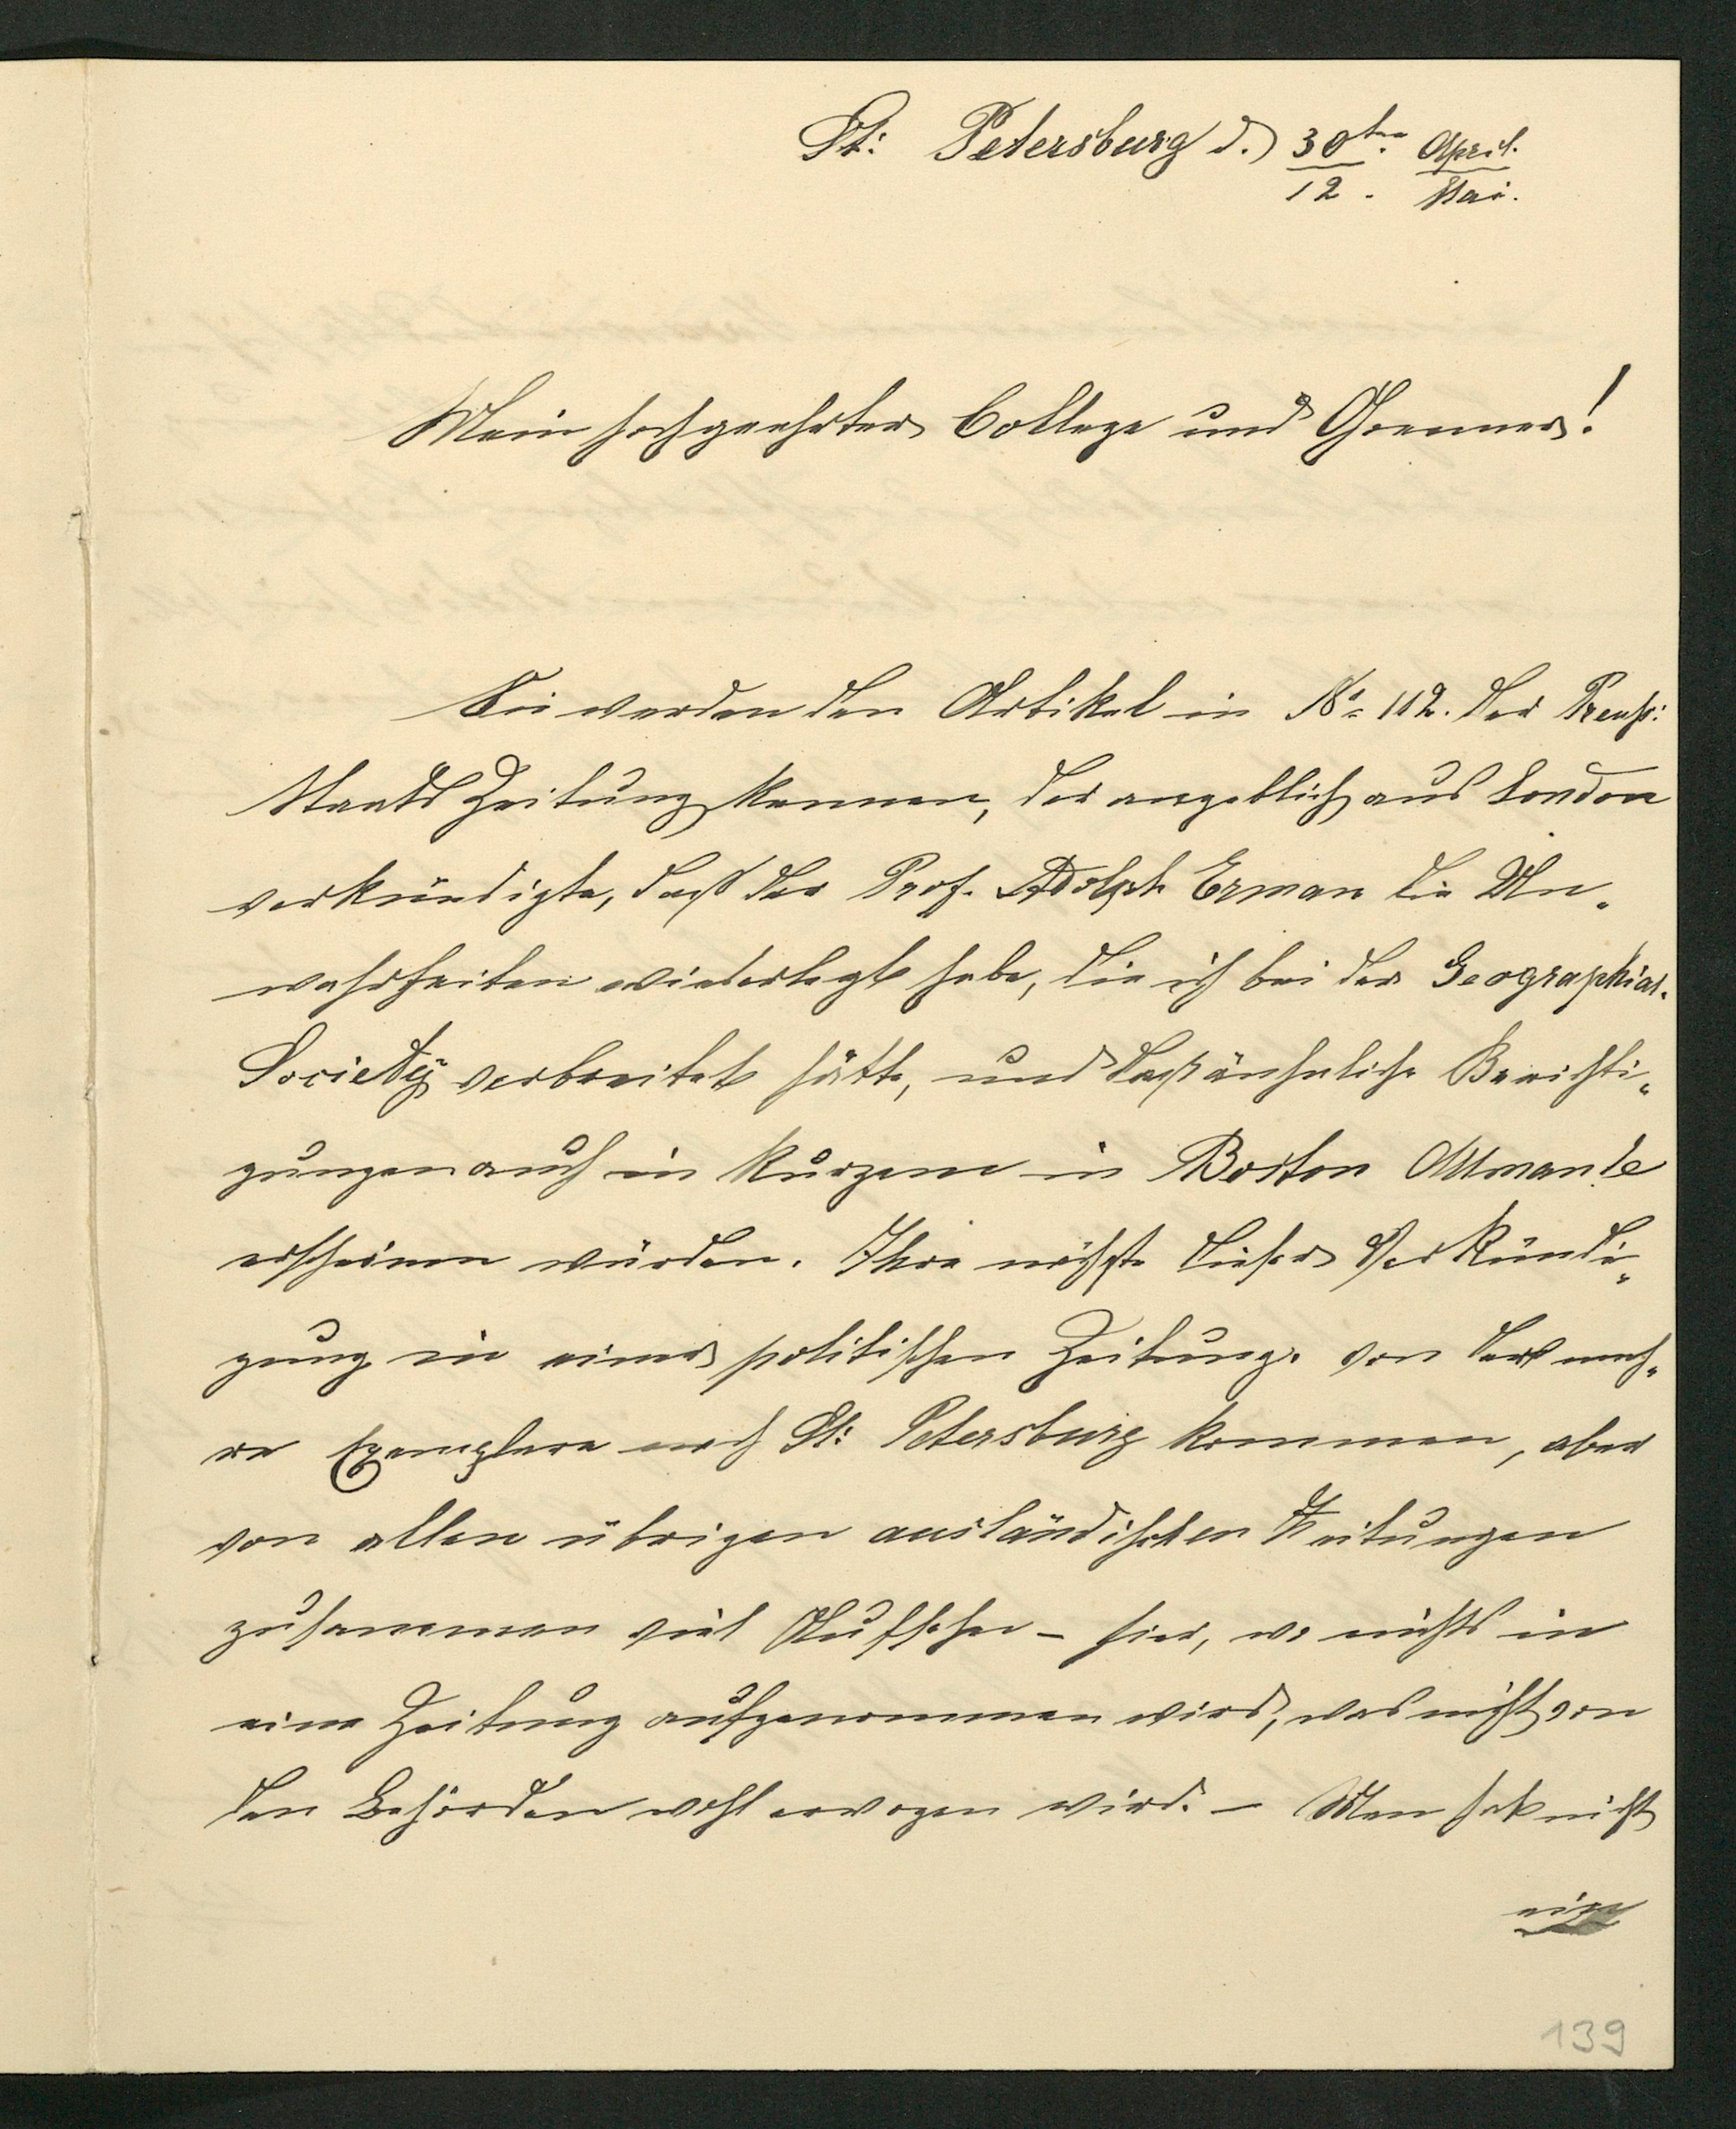 St: Petersburg d. 30ten. April.
12. Mai.
Mein hochgeehrter College und Goenner!
Sie werden den Artikel in No 112. der Preuß:
Staats Zeitung kennen, der angeblich aus London
verkündigte, daß der Prof. Adolph Erman die Un„
wahrheiten wiederlegt habe, die ich bei der Geographical.
Society verbreitet hätte, und daß ähnliche Berichti„
gungen auch in Kurzem in Boston
erscheinen würden. Ihre dieser Verkündi„
gung in einer politischen Zeitung, von der meh„
re Exemplare nach St: Petersburg kommen, aber
von allen übrigen ausländischen Zeitungen
zusammen viel Aufsehn – hier, wo nichts in
eine Zeitung aufgenommen wird, was nicht von
den Behörden wohl erwogen wird. – Man hat nicht
ein
139